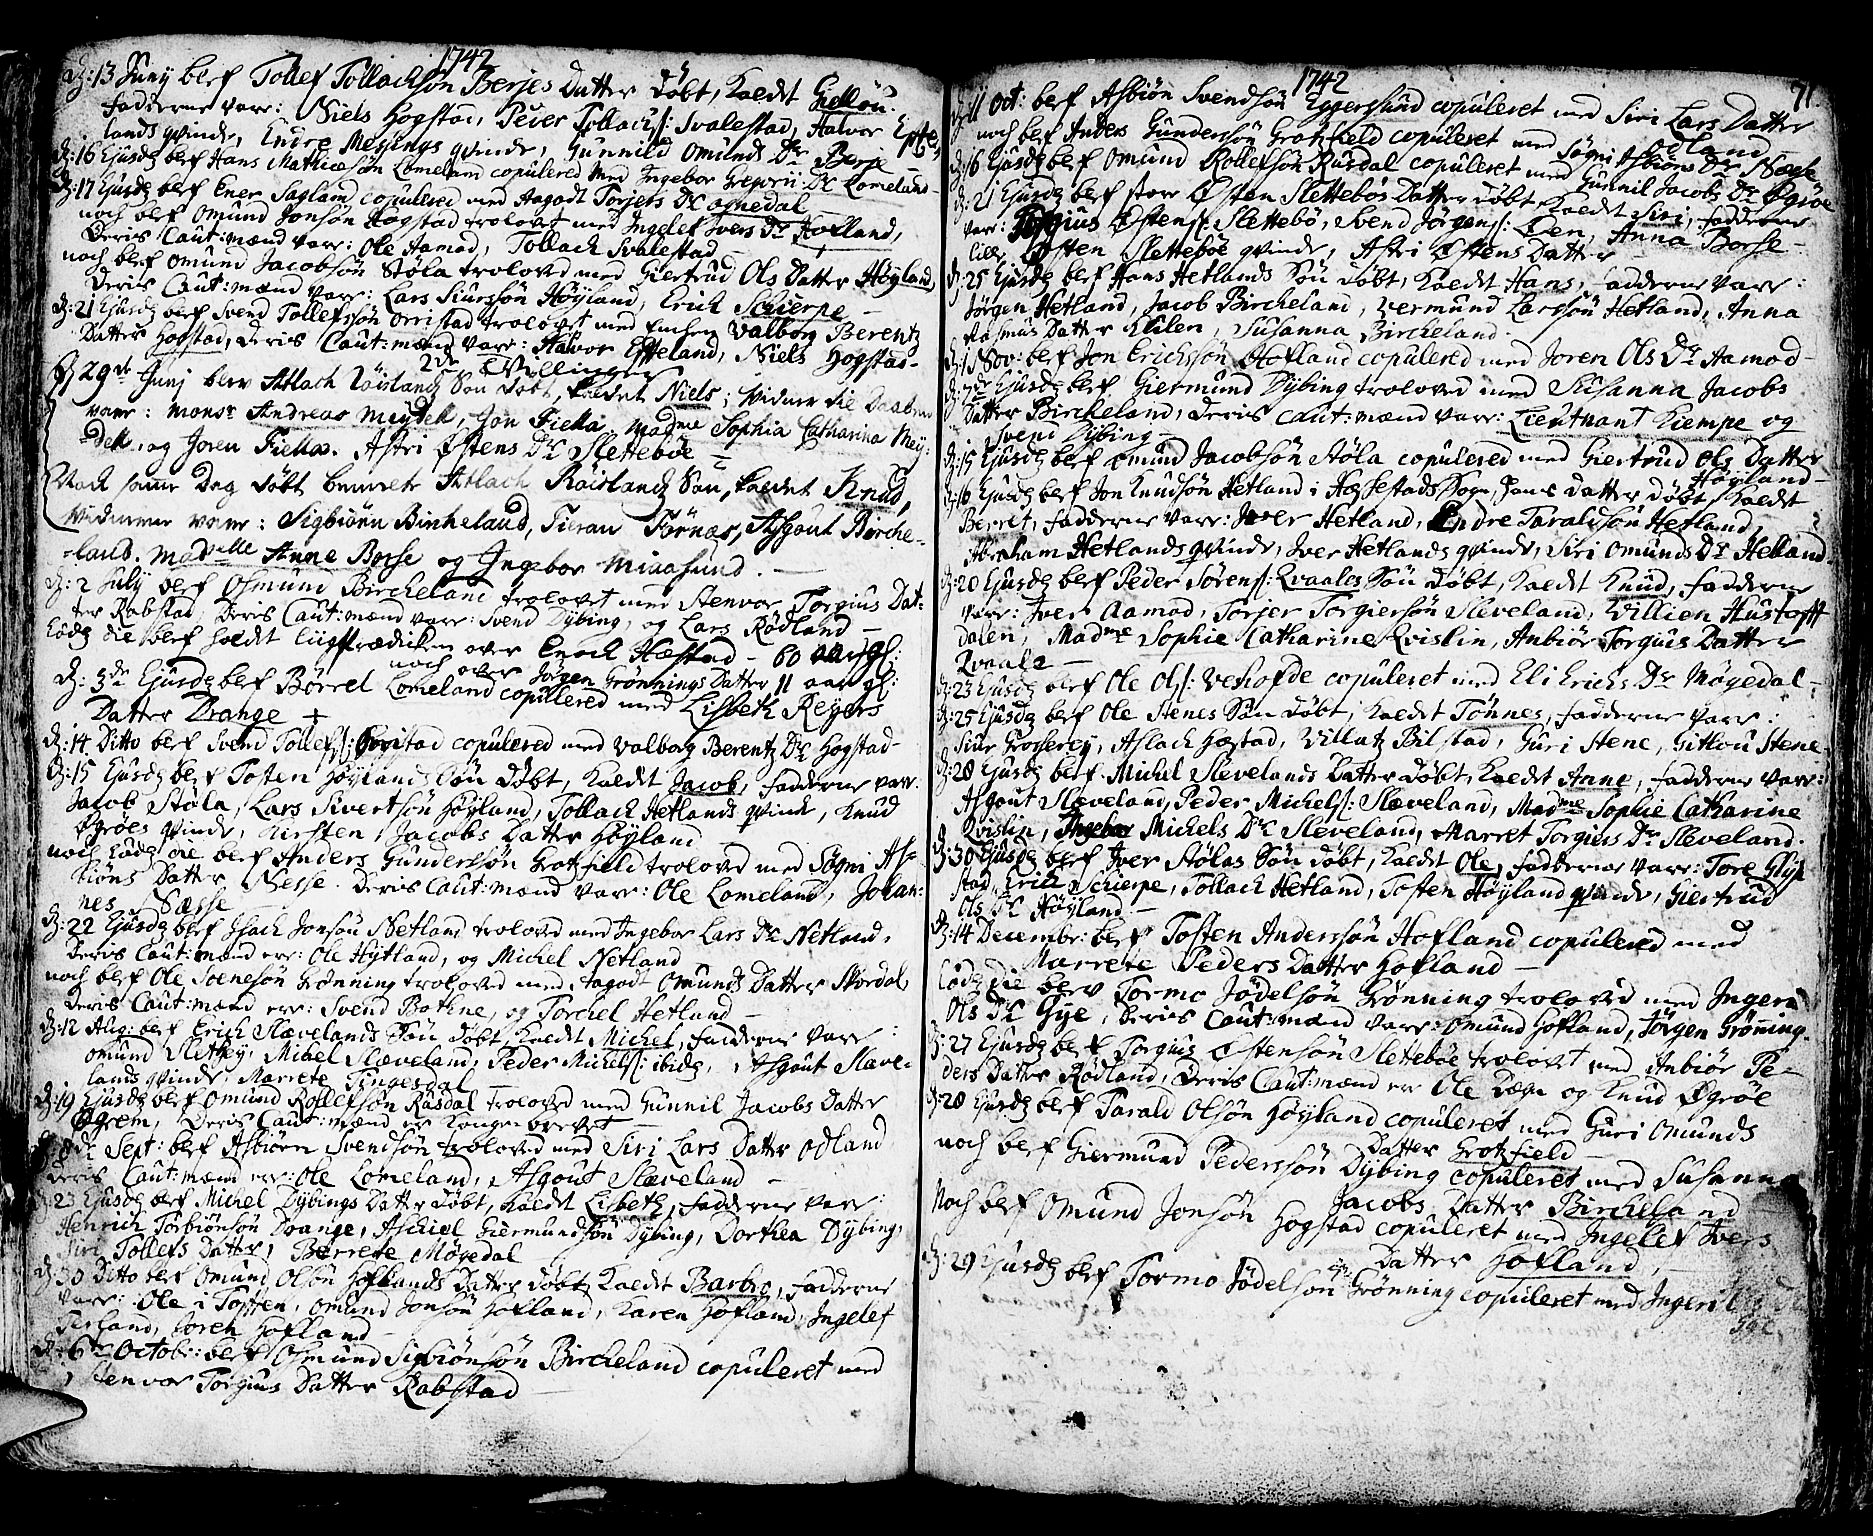 1742
d: 13 Junij blef Tollef Tollachsøn Berjes Datter døbt, kaldt Giellou.
Fadderne var: Niels Hogstad, Peder Tollachs: Svalestad, Halvor Efte-
lands qvinde, Endre Meyings qvinde, Gunnild Omunds Dr Berje
d: 16 Ejusdz blef Hans Mathiasøn Lomeland copulered med Ingebor Gregorii Dr Lomeland
d: 17 Ejusdz blef Ener Sagland copulered med Aagodt Torjers Dr Ognedal
noch blef Omund Jonsøn Hogstad trolovet med Ingelef Ivers Dr Hofland,
Deris Caut:mænd var: Ole Aamod, Tollach Svalestad
noch blef Omund Jacobsøn Støla troloved med Giertrud Ols Datter Høyland,
Deris Caut:mænd var: Lars Siursøn Høyland, Erich Schierpe
d: 21 Ejusdz blef Svend Tollefsøn Orristad trolovet med Valborg Berentz
Datter Hogstad, Deris Caut:mænd var: Halvor Efteland, Niels Hogstad
2de Tvillinger
29de Junj blev Atlach Røislands Søn døbt, kaldet Niels; Vidner til Daaben
vare: Monsr Andreas Meydell, Jon Fiella, Madme Sophia Catharina Mey-
dell, og Joren Fiella. Astri Østens Dr Slettebøe
Noch samme Dag døbt Atlach Røislandz Søn, kaldet Knud,
Vidnerne vare: Sigbiørn Birkeland, Tieran Tørnæs, Asgout Birche-
land, Madselle Anne Borse og Ingebor Miaasund.
d: 2 July blef Osmund Bircheland trolovet med Stenvor Torgius Dat-
ter Rabstad, Deris Caut:mænd var: Svend Dybing, og Lars Rødland
Lødz die blef holdt liigprædiken over Enoch Hæstad - 60 aar gl:
noch over Jørgen Grønnings Datter 11 aar gl:
d: 3de Ejusdz blef Børrel Lomeland copulered med Lisbeth Reyers
Datter Drange
d: 14 Ditto blef Svend Tollefs: Orristad copulered med Valborg Berentz Dr Hogstad
d: 15 Ejusdz blef Tosten Høylands Søn døbt, kaldt Jacob, Fadderne var:
Jacob Støla, Lars Sivertsøn Høyland, Tollach Hetlands qvinde, Knud
Øgrøes qvinde, Kirsten Jacobs Datter Høyland
noch Lødz die blef Anders Gundersøn Grotfield troloved med Søgni As-
biøns Datter Nesse. Deris Caut:mænd var: Ole Lomeland, Johan-
nes Næsse
d: 22 Ejusdz blef Isach Jonsøn Netland troloved med Ingebor Lars Dr Netland,
Deris Caut:mænd er: Ole Hÿtland, og Michel Netland
noch blef Ole Soensøn Grønning troloved med Aagodt Omunds Datter Skordal
Deris Caut:mænd er: Svend Bothne, og Torchel Hetland
d: 12 Aug: blef Erich Slævelands Søn døbt, kaldt Michel, Fadderne var:
Omund Slettey, Michel Slæveland, Peder Michels: ibidz, Asgout Slæve-
lands qvinde, Marrete Tingesdal
d: 19 Ejusdz blef Omund Rollefsøn Rusdal troloved med Gunnil Jacobs Datter
Øgreem, Deris Caut:mænd er Kongenbrevet
d: 8de Sept: blef Asbiørn Svendsøn troloved med Siri Lars Datter Odland
Deris Caut:mænd er: Ole Lomeland, Asgout Slæveland
d: 23 Ejusdz blef Michel Dybings Datter døbt, kaldt Lisbeth, Fadderne var:
Henrich Torbiønsøn Drange, Aschiel Giermundsøn Dybing, Dorthea Dybing,
Siri Tollefs Datter, Berrete Møgedal
d: 30 Ditto blef Omund Olsøn Hoflands Datter døbt, kaldt Barbro, Fadderne
var: Ole i Toften, Omund Jonsøn Hofland, Karen Hofland, Ingelef
Søren Hofland
d: 6te Octob: blef Osmund Sigbiønsøn Bircheland copuleret med
Stenvor Torgius Datter Rabstad
1742
71
d: 11 Oct: blef Asbiøn Svendsøn Eggersund copuleret med Siri Lars Datter
Odland
noch blef Anders Gundersøn Grotfield copuleret med Søgni Asbiøns Dr Næse
d: 16 Ejusdz blef Omund Rollefsøn Rusdal copuleret med Gunnil Jacobs Dr Øgrøe
d: 21 Ejusdz blef store Østen Slettebøs Datter døbt, kaldt Siri, Fadderne
var: Torgius Østens: Slettebø, Svend Jørgens: Eien, Anna Borse
lille Østen Slettebøe qvinde, Astri Østens Datter
d: 25 Ejusdz blef Hans Hetlands Søn døbt, kaldt Hans, Fadderne var:
Jørgen Hetland, Jacob Bircheland, Vermund Larssøn Hetland, Anna
Rasmus Datter Eiilen, Susanna Bircheland.
d: 1 Nov: blef Jon Erichssøn Hofland copulered med Joren Ols Dr Aamod
d: 7de Ejusdz blef Giermund Dybing troloved med Susanna Jacobs
Datter Bircheland, Deris Caut:mænd var: Lieutnant Kiempe og
Svend Dybing
d: 15 Ejusdz blef Omund Jacobsøn Støla copulered med Giertrud Ols Datter
Høyland
d: 16 Ejusdz blef Jon Knudsøn Hetland i Hæsestads Sogn, hans Datter døbt kaldt
Berret, Fadderne var: Iver Hetland, Endre Taraldsøn Hetland,
Abraham Hetlands qvinde, Iver Hetlands qvinde, Siri Omunds Dr Hetland
d: 20 Ejusdz blef Peder Sørens: Qvaales Søn døbt, kaldt Knud, Fadderne
var: Iver Aamod, Torjer Torgiersøn Sleveland, Villien Hustofft
dalen, Madme Sophie Catharine Qvislin, Anbiør Torgius Datter
Qvaale
d: 23 Ejusdz blef Ole Ols: Veshofde copuleret med Eli Erichs Dr Møgedal
d: 25 Ejusdz blef Ole Stenes Søn døbt, kaldt Tønnes, Fadderne var:
Siur Grosserej, Aslach Hæstad, Villatz Bilstad, Guri Stene, Gitlou Stene
d: 28 Ejusdz blef Michel Slevelands Datter døbt, kaldt Anne, Fadderne var:
Asgout Slæveland, Peder Michels: Slæveland, Madme Sophie Catharine
Qvislin, Ingebor Michels Dr Sleveland, Marret Torgiers Dr Sleveland.
d: 30 Ejusdz blef Iver Stølas Søn døbt, kaldt Ole, Fadderne var: Tore
stad, Erich Schierpe, Tollach Hetland, Tosten Høyland qvinde, Giertrud
Ols Dr Høyland
d: 14 Decembr: blef Tosten Anderssøn Hofland copulered med
Marrete Peders Datter Hofland
Lødz die blev Tormo Jødelsøn Grønning troloved med Ingeri
Ols Dr Gye, Deris Caut:mænd var: Omund Hofland, Jørgen Grønning.
d: 27 Ejusdz blef Torgius Østensøn Slettebøe trolovt med Anbiør Pe-
ders Datter Rødland, Deris Caut:mænd er Ole Dægn og Knud Øgrøe
d: 28 Ejusdz blef Tarald Olsøn Høyland copuleret med Guri Omunds
Datter Grotfield
noch blef Giermund Pederssøn Dybing copuleret med Susanna
Jacobs Datter Bircheland
Noch blef Omund Jonsøn Hogstad copuleret med Ingelef Ivers
Datter Hofland,
d: 29 Ejusdz blef Tormo Jødelsøn Grønning copuleret med Ingeri Ols Dr
Gye